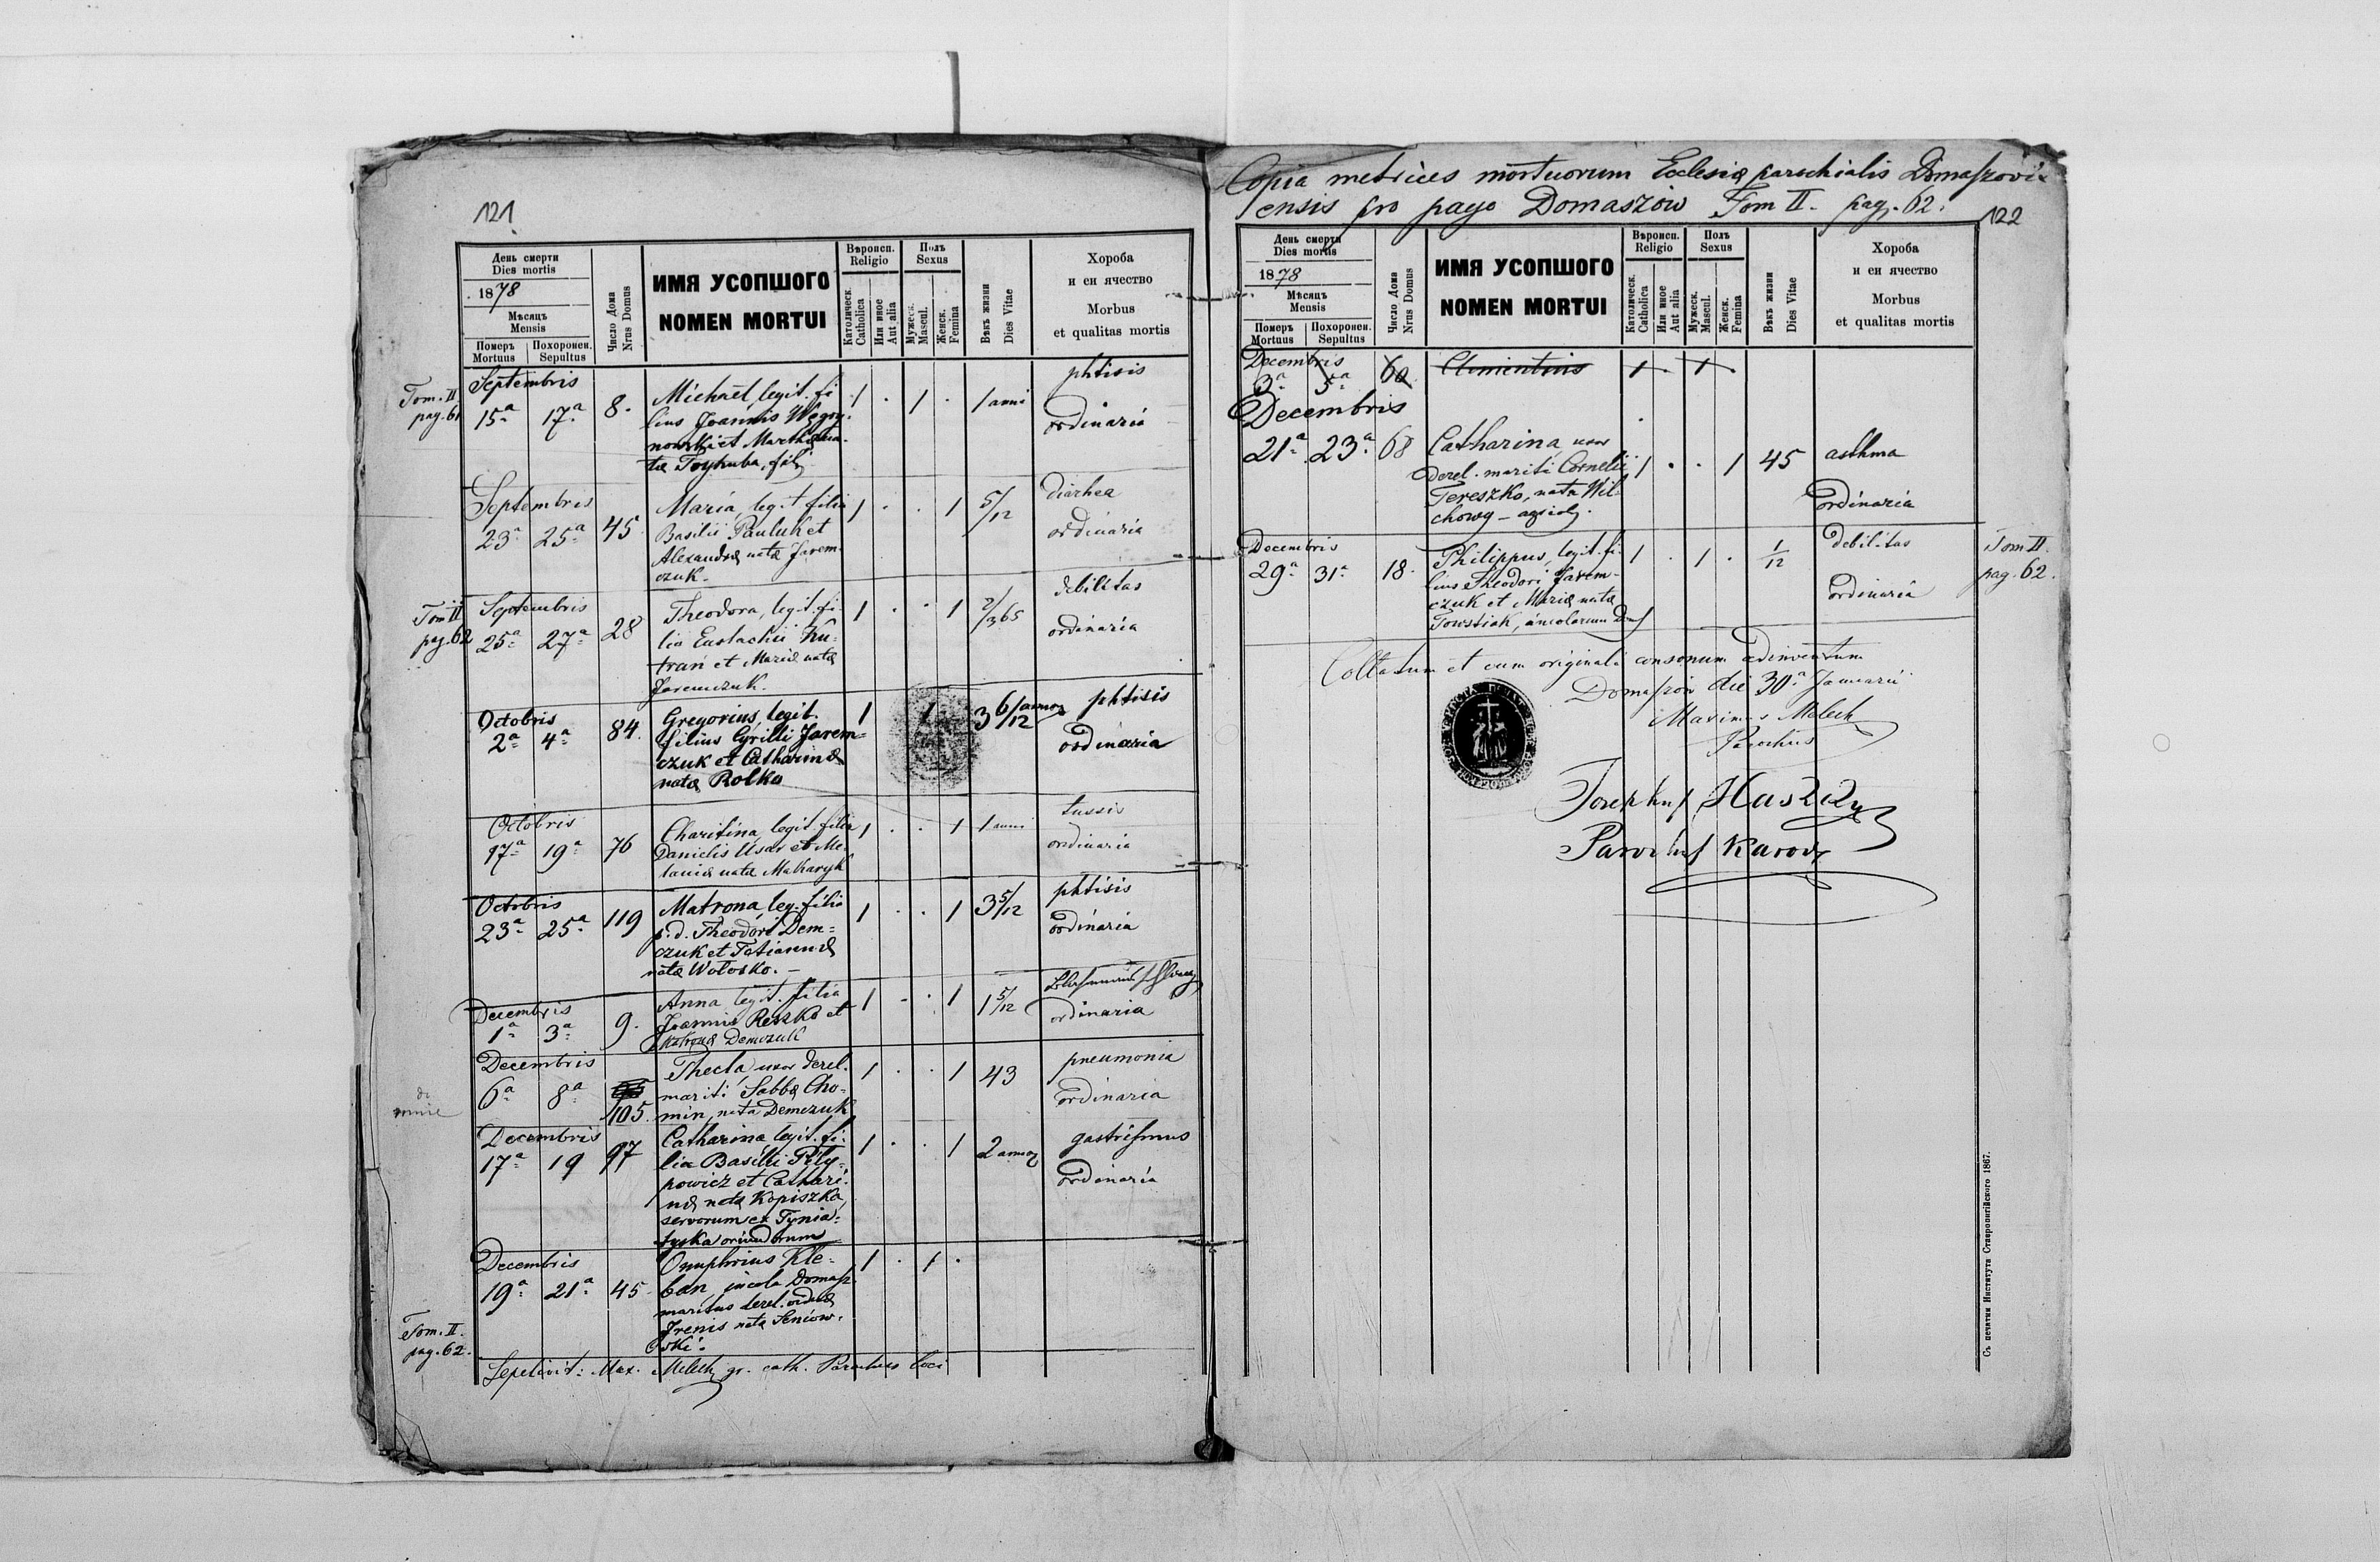 121
День смерти
Dies mortis
1878
Мѣсяцъ
Mensis
Померъ
Mortuus
Похоронен.
Sepultus
Число Дома
Nrus Domus
ИМЯ УСОПШОГО
NOMEN MORTUI
Вѣроисп.
Religio
Католическ.
Catholica
Или иное
Aut alia
Полъ
Sexus
Мужеск.
Mascul.
Женск.
Femina
Вѣкъ жизни
Dies Vitae
Хороба
и еи ячество
Morbus
et qualitas mortis
Tom. II
pag. 61
Septembris
15ª 17ª 8. Michaël, legit. fi 1 . 1 . 1 anni phtisis
lius Joannis ordinaria
et Martha na-
tæ
Septembris
23ª 25ª 45 Maria, legit filia 1 . . 1 5/12 diarhea
Basilii Pauluk et ordinaria
Alexandræ natæ Jarem-
czuk.
Tom II
pag. 62
Septembris
25ª 27ª 28 Theodora, legit. fi- 1 . . 1 2/365 debilitas
lia Eustachii Ku- ordinaria
tran et Mariæ natæ
Jaremczuk.
Octobris
2ª 4ª 84. Gregorius, legit. 1 1 3 6/12 annor phtisis
filius Cyrilli Jarem= ordinaria
czuk et Catharinæ
natæ Rolko
Octobris
17ª 19ª 76 Charitina, legit. filia 1 . . 1 1 anni tussis
Danielis Usar et Me- ordinaria
laniæ natæ Makaryk
Octobris
23ª 25ª 119 Matrona, leg. filia 1 . . 1 3 5/12 phtisis
p. d. Theodori Dem= ordinaria
czuk et Tatiannæ
natæ Wołosko. –
Decembris
1ª 3ª 9. Anna legit. filia 1 . . 1 1 5/12
Joannis Reszko et ordinaria
Demczuk
Decembris
6ª 8ª 105. Thecla uxor derel. 1 . . 1 43 pneumonia
mariti Sabbæ Cho= ordinaria
min, nata Demczuk
Decembris
17ª 19 97 Catharina, legit. fi- 1 . . 1 2 annor gastrismus
lia Basilii Pily- ordinaria
powicz et Cathari-
næ natæ Kopiszka,
servorum ex Tynia-
tyska oriundorum
Decembris
19ª 21ª 45. Onuphrius Kle- 1 . 1 .
ban, incola Domasz.
maritus derel. viduæ
Irenis natæ Seniow-
ski.
Tom. II.
pag. 62.
Sepelivit: Max. Melech gr. cath. Parochus loci
Copia metrices mortuorum Ecclesiæ parochialis Domaszovi-
ensis pro pago Domaszów Tom II. pag. 62.
122
День смерти
Dies mortis
1878
Мѣсяцъ
Mensis
Померъ
Mortuus
Похоронен.
Sepultus
Число Дома
Nrus Domus
ИМЯ УСОПШОГО
NOMEN MORTUI
Вѣроисп.
Religio
Католическ.
Catholica
Или иное
Aut alia
Полъ
Sexus
Мужеск.
Mascul.
Женск.
Femina
Вѣкъ жизни
Dies Vitae
Хороба
и еи ячество
Morbus
et qualitas mortis
Decembris
3ª 5ª 60 1 . 1 .
Decembris
21ª 23ª 68 Catharina, uxor 1 . . 1 45 asthma
derel. mariti Cornelii ordinaria
Tereszko, nata Wil-
chowy –
Decembris
29ª 31ª 18. Philippus, legit. fi- 1 . 1 . 1/12 debilitas
lius Theodori Jarem- ordinaria
czuk et Mariæ natæ
Towstiak, incolarum
Tom II.
pag. 62.
Collatum et cum originali consonum adinventum
Domaszów die 30ª Januarii
Maximus Melech
Parochus
Josephus
Parochus Karow
Съ печатни Института Ставропигійского 1867.